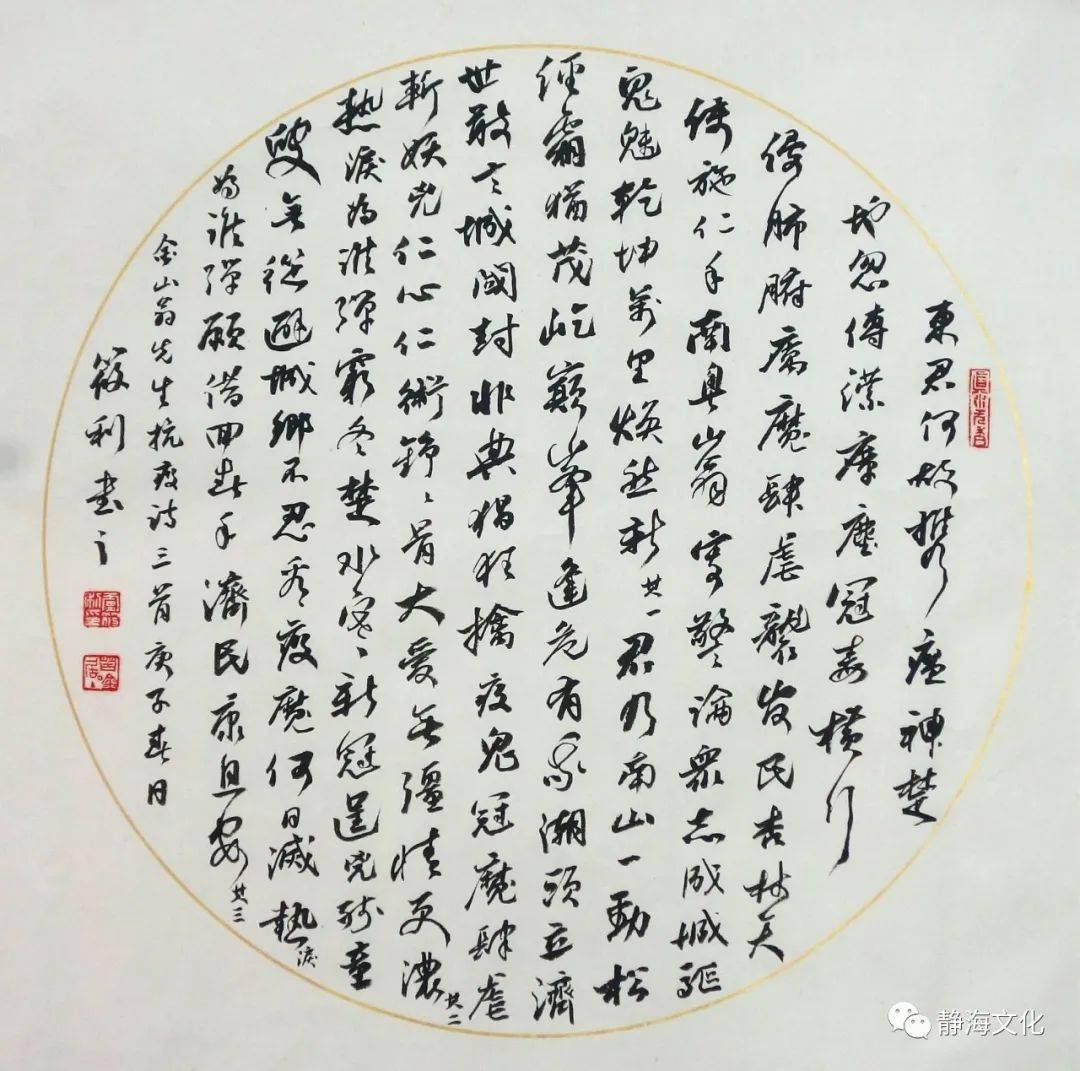 東君何故攜瘟神楚
地忽傳漾瘴塵冠毒橫行
侵肺腑腐魔肆虐襲黎民杏林天
使施仁手南粵山翁響警論眾志成城驅
鬼魅乾坤萬里煥然新 其一 君乃南山一勁松
經霜猶茂屹巔峯逢危有我潮頭立濟
世敢言城闕封非典猖狂擒疫鬼冠魔肆虐
斬妖兇仁心仁術錚錚骨大愛無疆情更濃 其二
熱淚為誰彈窮冬楚水寒寒新冠逞兇殘童
叟無從避城鄉不忍看疫魔何日滅熱淚
為誰彈願借回春手濟民康且安 其三
金山翁先生抗疫詩三首庚子春日
筱利書之
静海文化